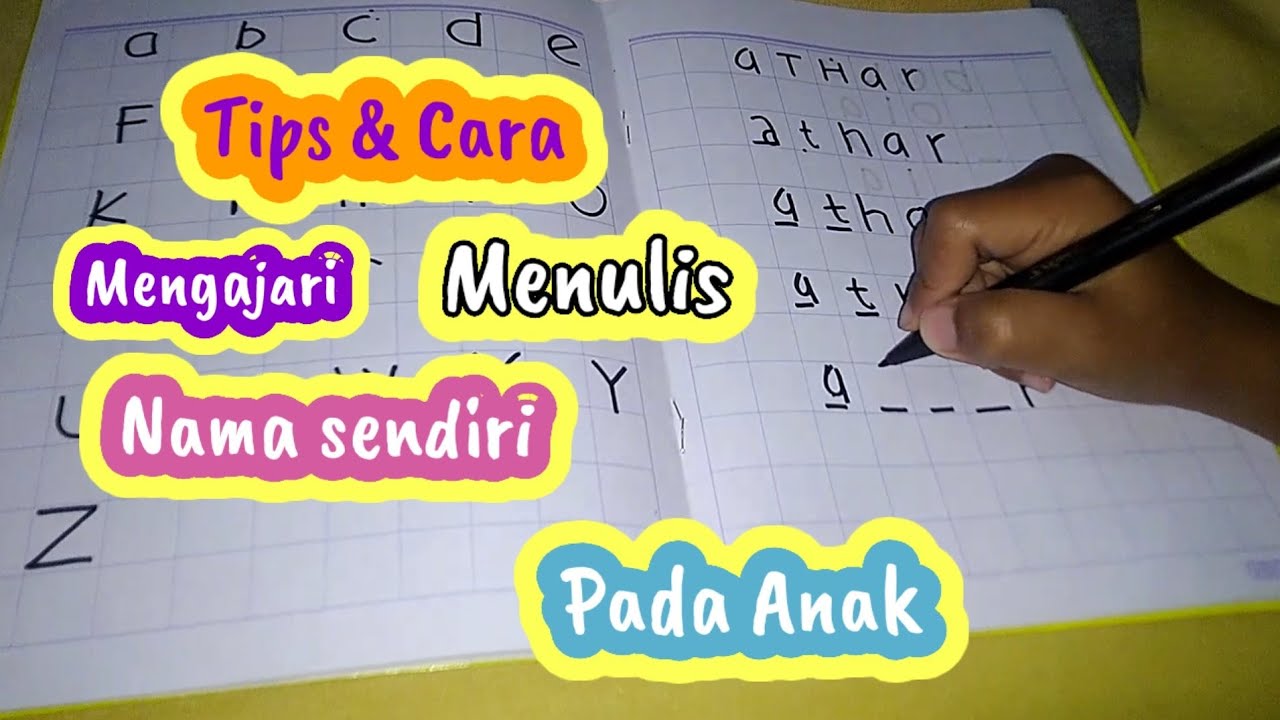 a b c d e
F
K
U Y
Z
Tips & Cara
Mengajari Menulis
Nama sendiri
Pada Anak
aTHar
athar
a th
a t
a _ _ _ r